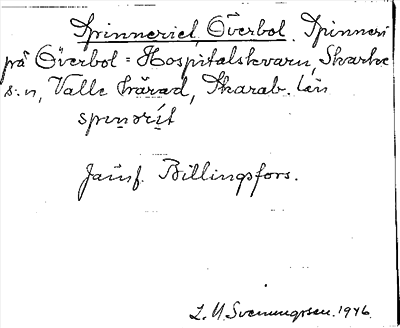 Spinneriet, Överbol. Spinneri
på Överbol = Hospitalskvarn, Skarke
s:n, Valle härad, Skarab. län
spinərít
Jämf. Billingsfors.
1946.